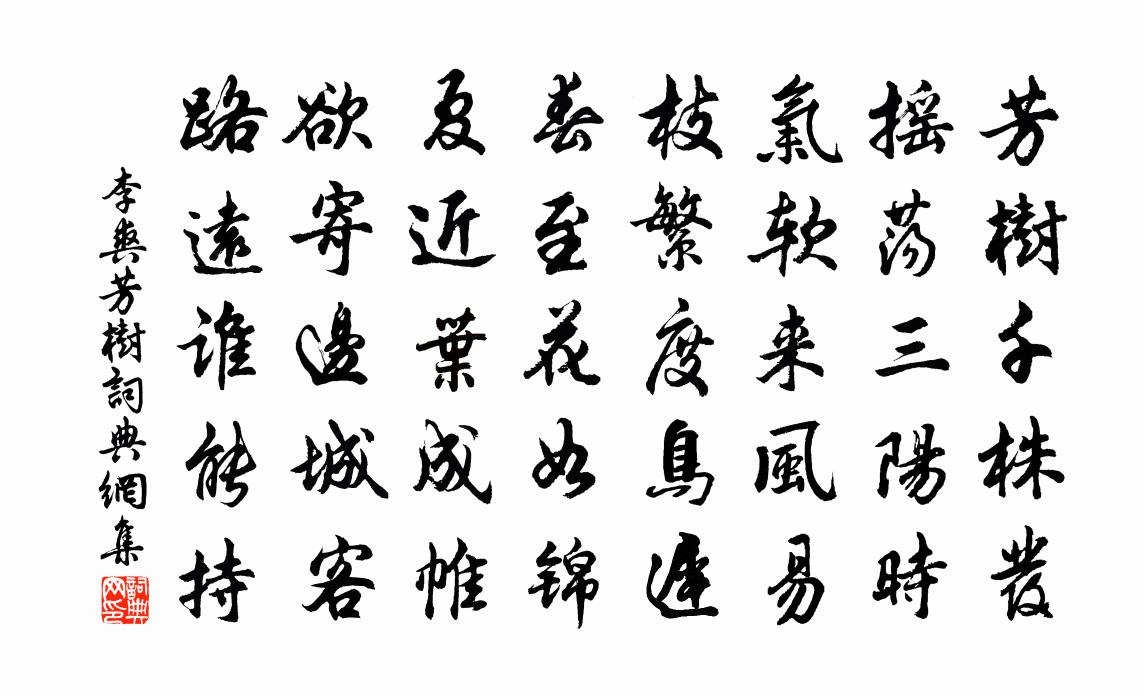 芳樹千株發
搖蕩三陽時
氣软来風易
枝繁度鳥遲
春至花如锦
夏近葉成帷
欲寄邊城客
路遠誰能持
李爽芳樹詞典網集
詞典网印